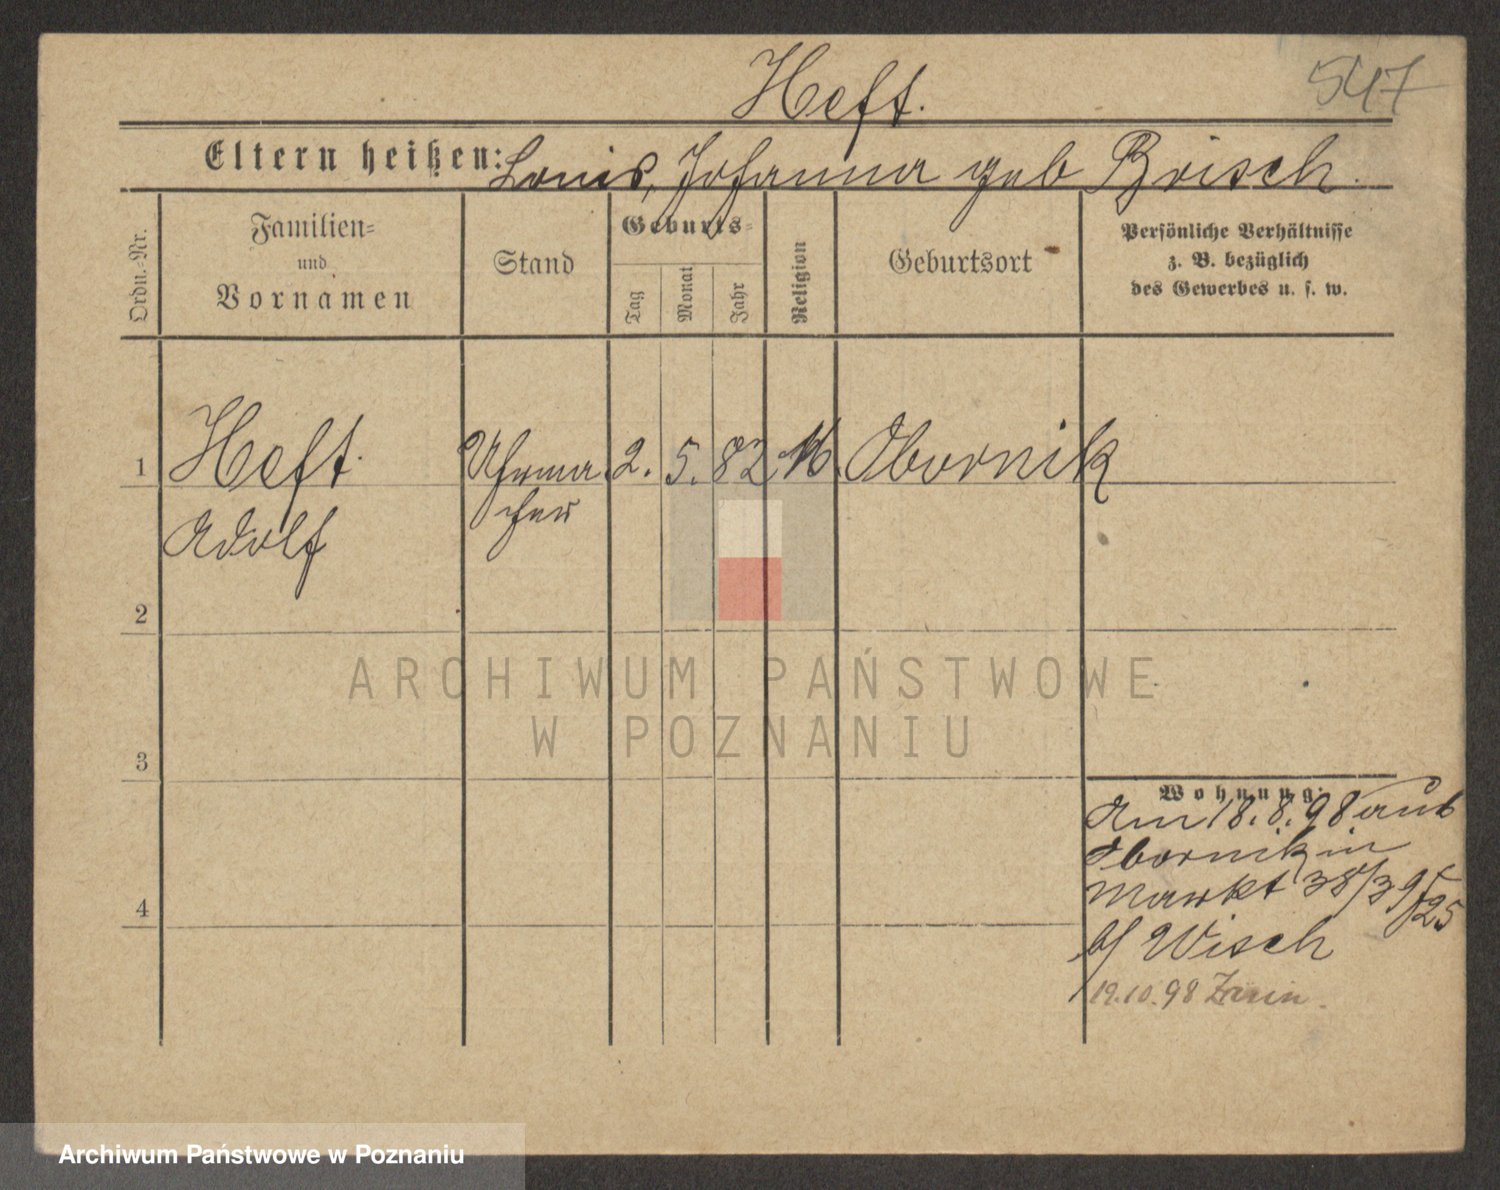 547
Heft.
Eltern heißen: Louis, Johanna geb Brisch.
Ordn.-Nr.
Familien-
und
Vornamen
Stand
Geburts-
Tag
Monat
Jahr
Religion
Geburtsort
Persönliche Verhältnisse
z. B. bezüglich
des Gewerbes u. s. w.
1 Heft. Uhrma 2. 5. 82 Obornik
Adolf cher
2
ARCHIWUM PAŃSTWOWE
W POZNANIU
3
Wohnung:
Am 18. 8. 98 aus
Obornik in
Markt 38/39/25
b/ Wisch
19.10.98
4
Archiwum Państwowe w Poznaniu